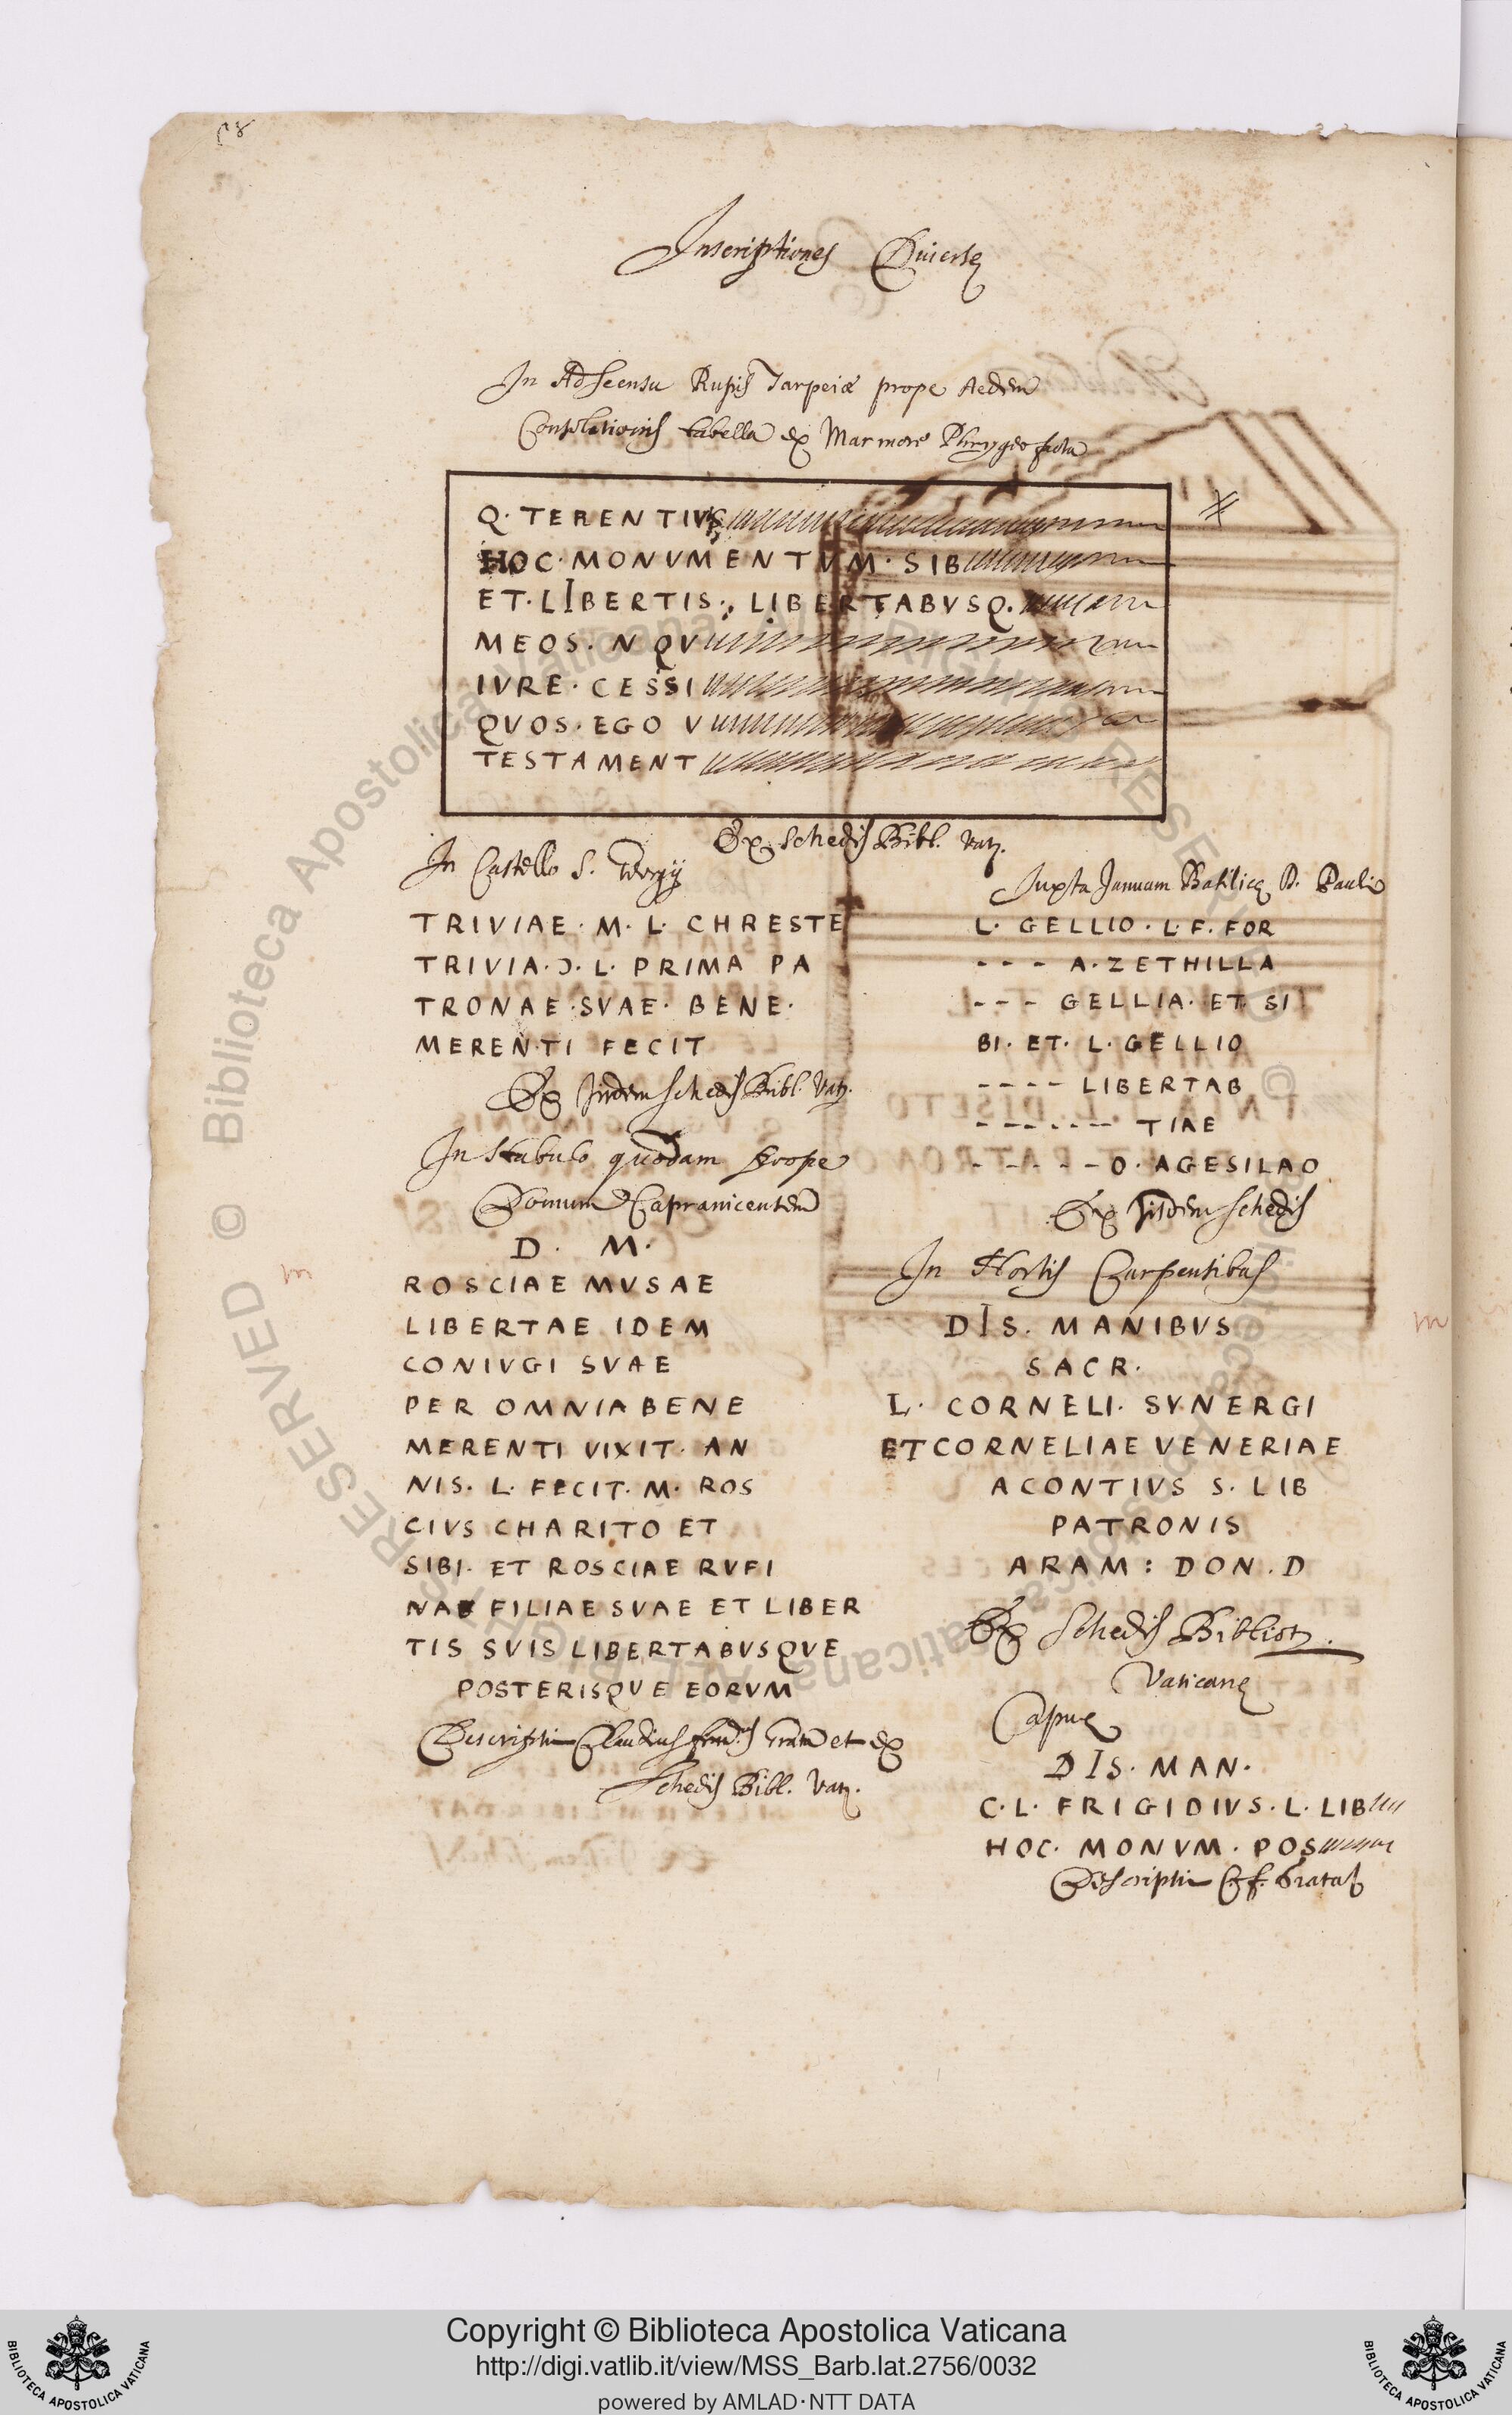 Inscriptiones Diuersę
In Adscensu Rupis Tarpeiæ prope Aedem
Consolationis tabella ex Marmore Phrygeo facta
Q. TERENTIVS
HOC. MONVMENTVM. SIB
ET. LIBERTIS. LIBERTABVSQ.
MEOS. N QV
IVRE. CESSI
QVOS. EGO V
TESTAMENT
Ex schedis Bibl. Vatę.
In Castello S.
TRIVIAE. M. L. CHRESTE
TRIVIA. Ɔ. L. PRIMA PA
TRONAE. SVAE. BENE.
MERENTI FECIT
Ex schedis Bibl. Vatę.
In stabulo quodam prope
Domum Capranicensem
D. M.
ROSCIAE MVSAE
LIBERTAE IDEM
CONIVGI SVAE
PER OMNIA BENE
MERENTI VIXIT. AN
NIS. L. FECIT. M. ROS
CIVS CHARITO ET
SIBI. ET ROSCIAE RVFI
NAE FILIAE SVAE ET LIBER
TIS SVIS LIBERTABVSQVE
POSTERISQVE EORVM
Claudius et ex
Schedis Bibl. Vatę.
Juxta Januam Basilicę D. Pauli
L. GELLIO. L. F. FOR
- - - A. ZETHILLA
- - - GELLIA. ET. SI
BI. ET. L. GELLIO
- - - - LIBERTAB
- - - - - - - TIAE
- - - - - O. AGESILAO
Ex iisdem schedis
In Hortis Carpensibus
DIS. MANIBVS
SACR.
L. CORNELI. SYNERGI
ET CORNELIAE VENERIAE
ACONTIVS S. LIB
PATRONIS
ARAM: DON. D
Ex Schedis Bibliot.
Vaticanę
Capuę
DIS. MAN.
C. L. FRIGIDIVS. L. LIB
HOC. MONVM. POS
Copyright © Biblioteca Apostolica Vaticana
http://digi.vatlib.it/view/MSS_Barb.lat.2756/0032
powered by AMLAD·NTT DATA
BIBLIOTECA APOSTOLICA VATICANA
BIBLIOTECA APOSTOLICA VATICANA